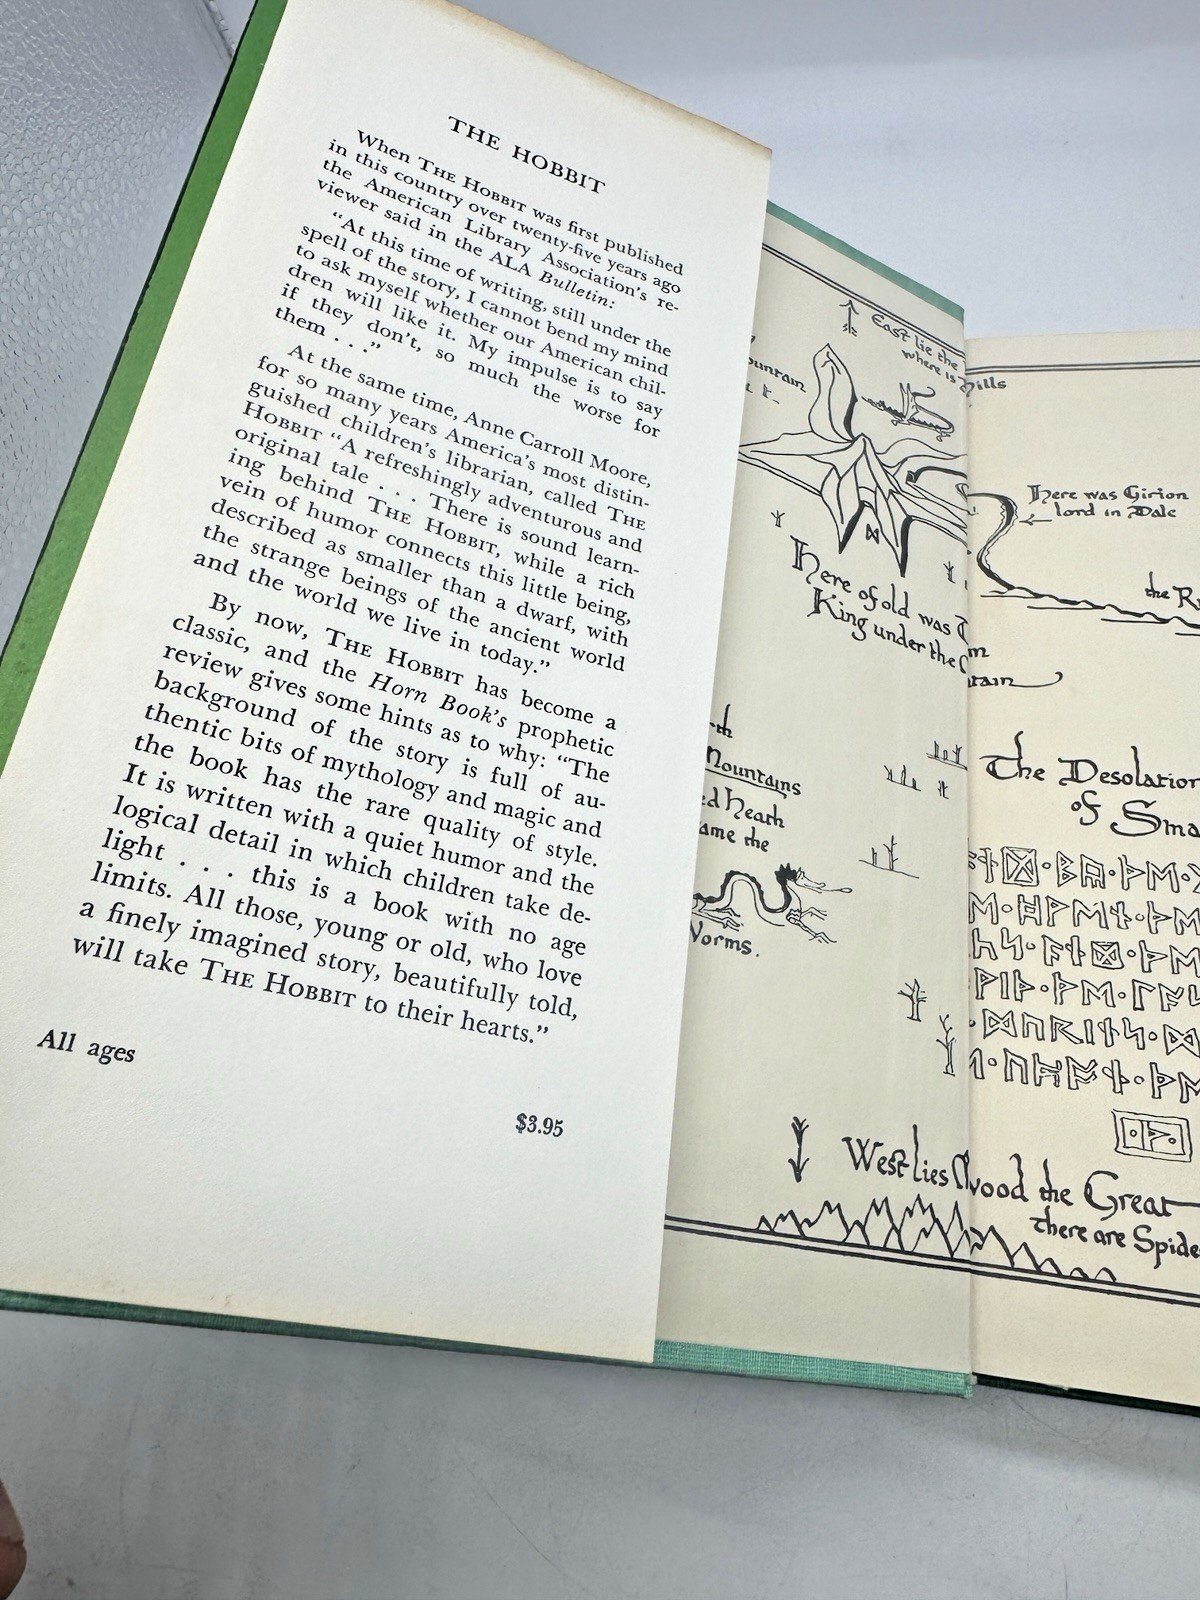 THE HOBBIT
When THE HOBBIT was first published
in this country over twenty-five years ago
the American Library Association's re-
viewer said in the ALA Bulletin:
"At this time of writing, still under the
spell of the story, I cannot bend my mind
to ask myself whether our American chil-
dren will like it. My impulse is to say
if they don't, so much the worse for
them . . ."
At the same time, Anne Carroll Moore,
for so many years America's most distin-
guished children's librarian, called THE
HOBBIT "A refreshingly adventurous and
original tale . . . There is sound learn-
ing behind THE HOBBIT, while a rich
vein of humor connects this little being,
described as smaller than a dwarf, with
the strange beings of the ancient world
and the world we live in today."
By now, THE HOBBIT has become a
classic, and the Horn Book's prophetic
review gives some hints as to why: "The
background of the story is full of au-
thentic bits of mythology and magic and
the book has the rare quality of style.
It is written with a quiet humor and the
logical detail in which children take de-
light . . . this is a book with no age
limits. All those, young or old, who love
a finely imagined story, beautifully told,
will take THE HOBBIT to their hearts."
All ages
$3.95
East lie the
where is
Hills
Here was Girion
lord in Dale
the
Here of old was
King under the
The Desolation
of
Mountains
Heath
the
West lies
wood the Great
there are